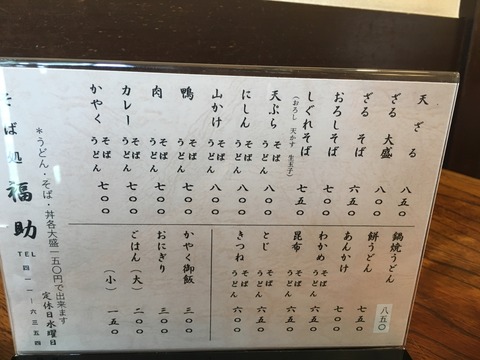 天ざる 八五〇
ざる 大盛 八〇〇
ざる そば 六五〇
おろしそば 七〇〇
しぐれそば 七五〇
(おろし 天かす 生玉子)
天ぷら そば うどん 八〇〇
にしん そば うどん 八〇〇
山かけ そば うどん 八〇〇
鴨 そば うどん 七〇〇
肉 そば うどん 七〇〇
カレー そば うどん 七〇〇
かやく そば うどん 七〇〇
鍋焼うどん 八五〇
餅うどん 七〇〇
あんかけ 七〇〇
わかめ そば うどん 六〇〇
昆布 そば うどん 六〇〇
とじ そば うどん 六〇〇
きつね そば うどん 六〇〇
かやく御飯 三〇〇
おにぎり 三〇〇
ごはん(大) 二〇〇
(小) 一五〇
*うどん・そば・丼各大盛一五〇円で出来ます
定休日水曜日
そば処 福助
TEL